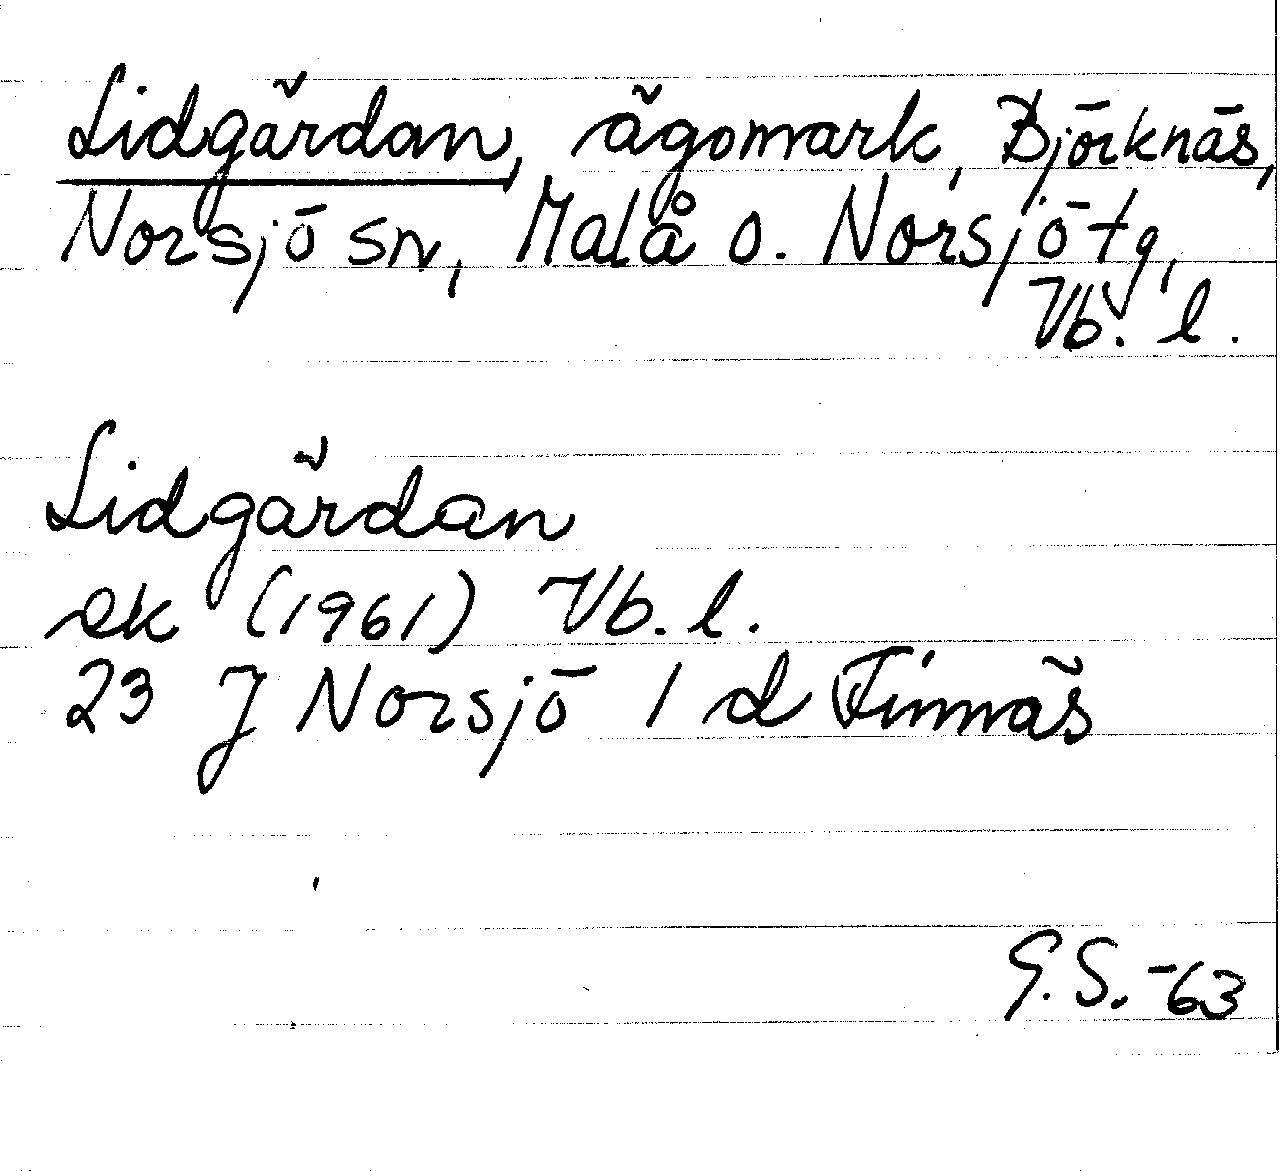 Lidgärdan, ägomark, Björknäs,
Norsjö sn, Malå o. Norsjö tg,
Vb. l.
Lidgärdan
ek (1961) Vb. l.
23 J Norsjö 1 d Finnäs
G.S. -63